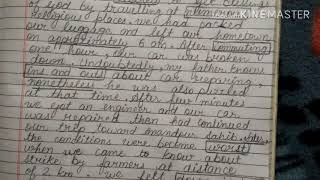 of god by travelling at
religious places. we had packed
our luggage and left our hometown
on approximately 6 am. After commuting
one hour, our car was broken
down. Undoubtedly my father knows
ins and outs about car repairing,
nonetheless he was also puzzled
at that time. After few minutes
we got an engineer and our car
was repaired then had continued
our trip toward anandpur sahib.
the conditions were become worst
when we came to know about
strike by farmers at distance
of 2 km. we left
KINEMASTER